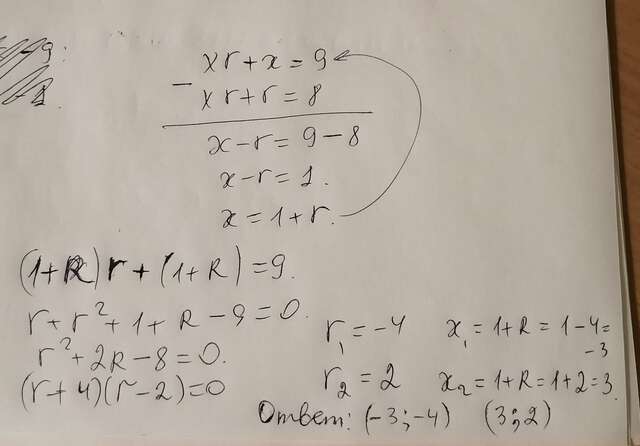 xr+x=9
− xr+r=8
x−r=9−8
x−r=1.
x=1+r.
(1+R)r+(1+R)=9.
r+r²+1+R−9=0.
r²+2R−8=0.
(r+4)(r−2)=0
r₁=−4 x₁=1+R=1−4=
−3
r₂=2 x₂=1+R=1+2=3.
Ответ: (−3;−4) (3;2)